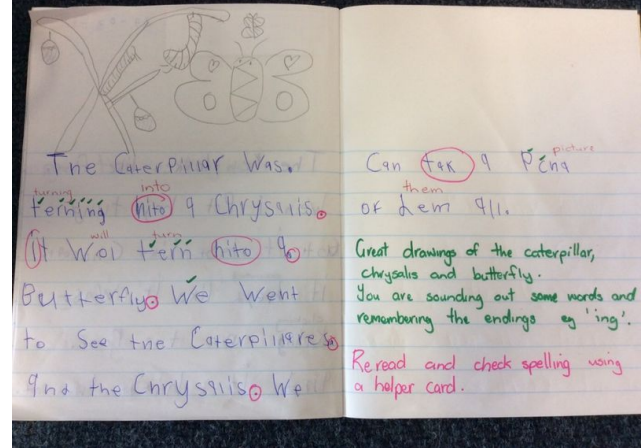 The Caterpillar Was.
turning into
terning hito a Chrysalis.
will turn
It Wol tern hito a.
Butterfly. We Went
to See the Caterpillares.
and the Chrysalis. We
picture
Can tak a Pcna
them
of dem all.
Great drawings of the caterpillar,
chrysalis and butterfly.
You are sounding out some words and
remembering the endings eg 'ing'.
Reread and check spelling using
a helper card.